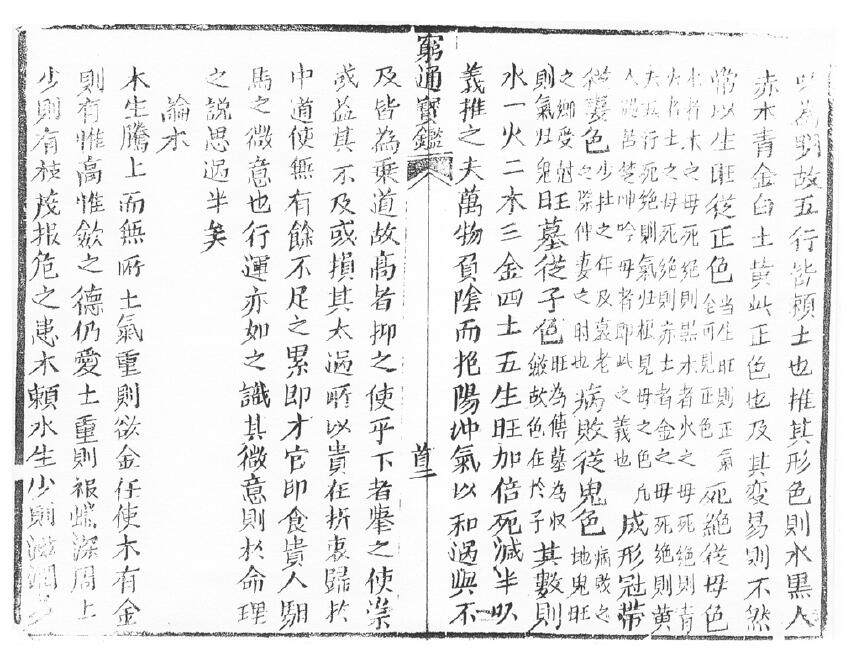 以為明故五行皆賴土也推其形色則水黑
赤木青金白土黄此正色也及其变易則不然
常以生旺従正色當生旺則正氣全可見正色死絶従母色
水者木之母死絶則黒木者火之母死絶則青
火者土之母死絶則赤土者金之母死絶則黄
夫五行死絶則氣归根見母之色凢
人遇苦楚呻吟母者即此之義也成形冠帶
從妻色少壮之年及衰老之際仲妻之時也病敗從鬼色病敗之地鬼旺
之鄉受尅則氣归鬼旺墓從子色旺為傳墓為収繳故色在於子其數則
水一火二木三金四土五生旺加倍死減半以
義推之夫萬物負陰而抱陽冲氣以和過與不
窮通寳鑑
首二
及皆為乗道故高者抑之使平下者舉之使崇
或益其不及或損其太過所以貴在折衷歸於
中道使無有餘不足之累即才官印食貴人馹
馬之微意也行運亦如之識其微意則於命理
之說思過半矣
論木
木生騰上而無所止氣重則欲金任使木有金
則有惟高惟歛之德仍愛土重則根蟠深固土
少則有枝茂根危之患木賴水生少則滋潤多